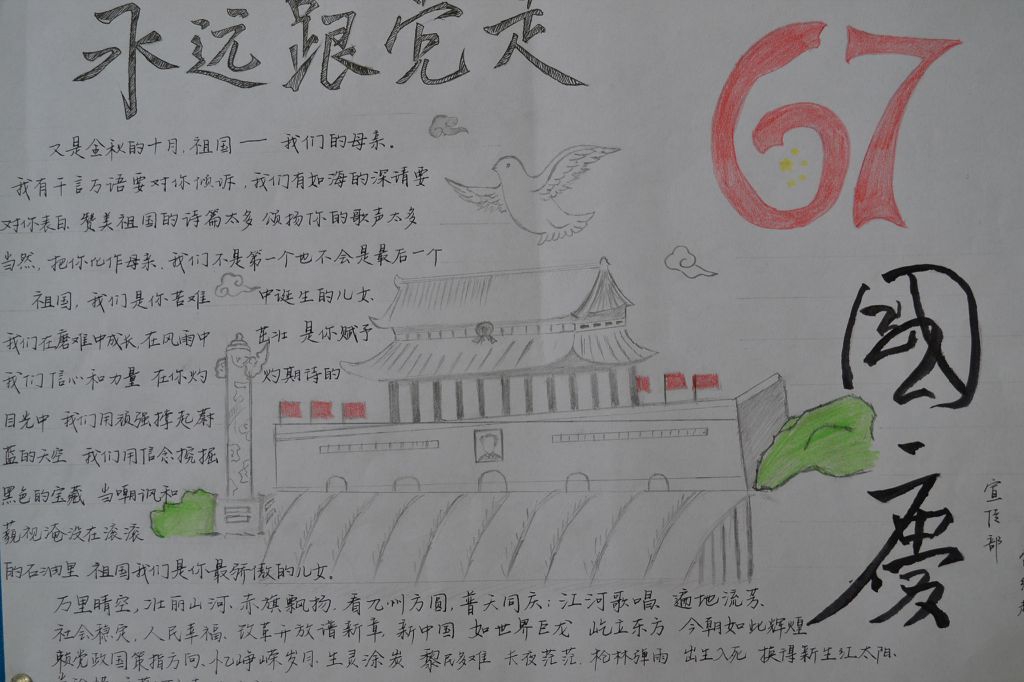 永远跟党走
67
又是金秋的十月,祖国— 我们的母亲。
我有千言万语要对你倾诉,我们有如海的深请要
对你表白 赞美祖国的诗篇太多 颂扬你的歌声太多
当然,把你比作母亲,我们不是第一个也不会是最后一个
祖国,我们是你苦难 中诞生的儿女、
我们在磨难中成长,在风雨中 茁壮 是你赋予
我们信心和力量 在你灼 灼期待的
目光中 我们用顽强撑起蔚
蓝的天空 我们用信念挖掘
黑色的宝藏 当嘲讽和
藐视淹没在滚滚
的石油里 祖国我们是你最骄傲的儿女。
万里晴空,壮丽山河、赤旗飘扬、看九州方圆,普天同庆;江河歌唱、遍地流芳、
社会稳定,人民幸福、改革开放谱新章、新中国 如世界巨龙 屹立东方 今朝如此辉煌
赖党政国策指方向、忆峥嵘岁月、生灵涂炭 黎民多难 长夜茫茫、枪林弹雨 出生入死 换得新生红太阳、
國·慶
宣传部